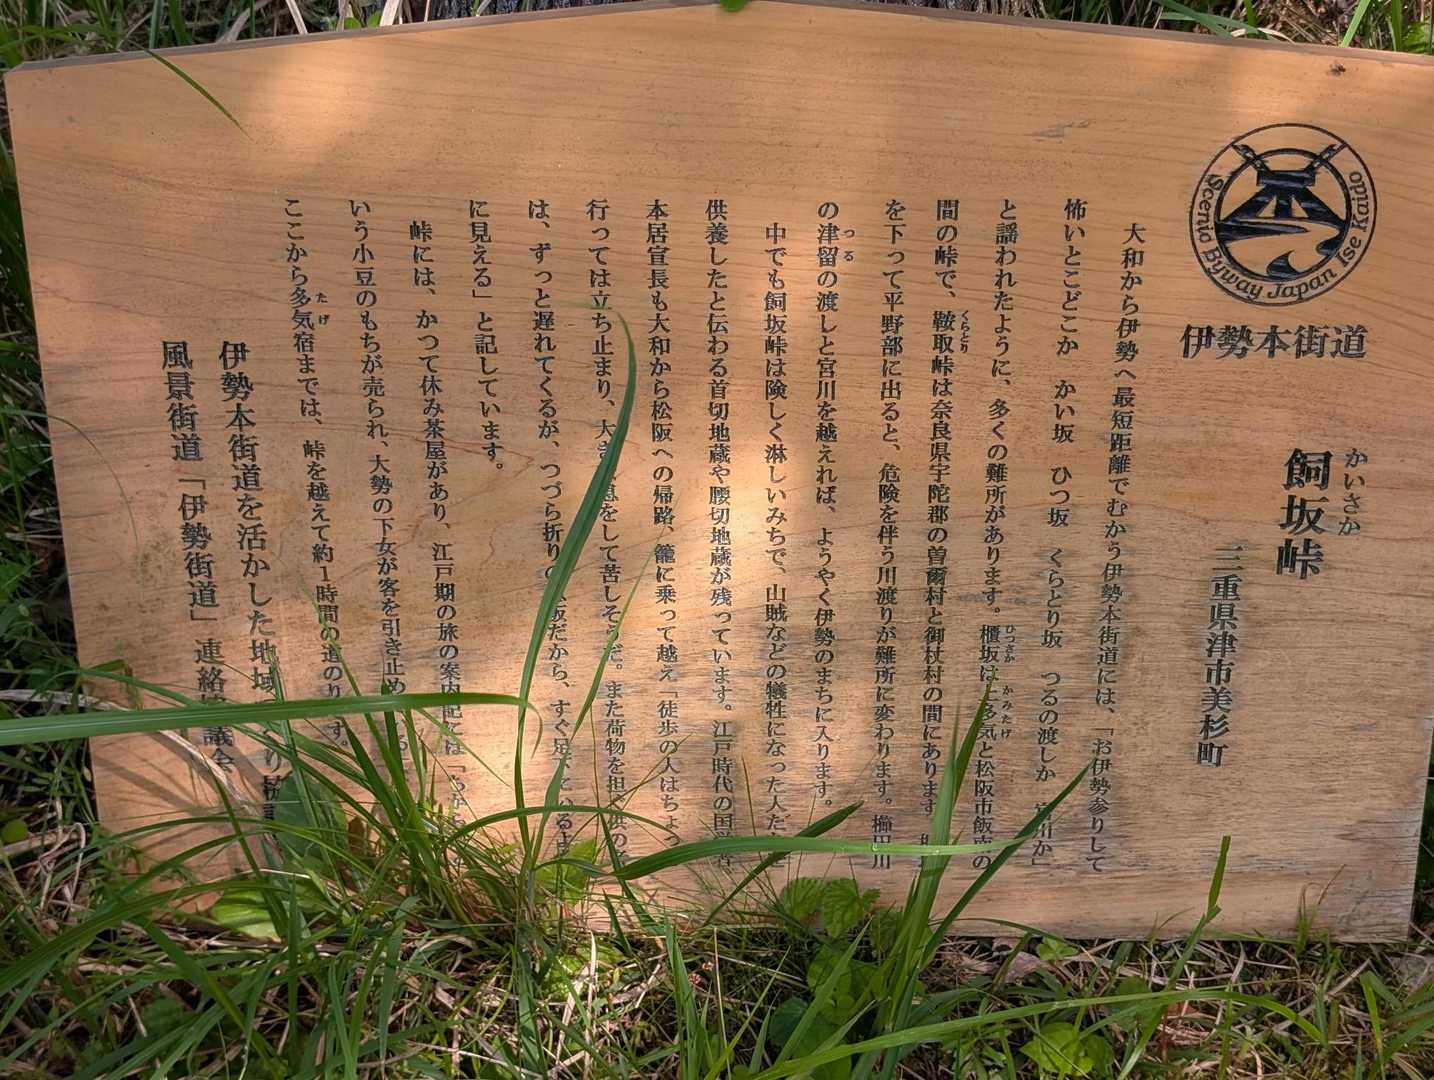 Scenic Byway Japan Ise Kaido
伊勢本街道
かいさか
飼坂峠
三重県津市美杉町
大和から伊勢へ最短距離でむかう伊勢本街道には、「お伊勢参りして
怖いとこどこか　かい坂　ひつ坂　くらとり坂　つるの渡しか　宮川か」
と謡われたように、多くの難所があります。櫃坂は上多気と松阪市飯南の
ひつさか
かみたげ
間の峠で、鞍取峠は奈良県宇陀郡の曽爾村と御杖村の間にあります。
くらとり
を下って平野部に出ると、危険を伴う川渡りが難所に変わります。櫛田川
の津留の渡しと宮川を越えれば、ようやく伊勢のまちに入ります。
つる
中でも飼坂峠は険しく淋しいみちで、山賊などの犠牲になった人だ
供養したと伝わる首切地蔵や腰切地蔵が残っています。江戸時代の国学者、
本居宣長も大和から松阪への帰路、籠に乗って越え「徒歩の人はちょっ
行っては立ち止まり、大き 息をして苦しそうだ。また荷物を担ぐ供の
は、ずっと遅れてくるが、つづら折りの 坂だから、すぐ足
に見える」と記しています。
峠には、かつて休み茶屋があり、江戸期の旅の案内記には「
いう小豆のもちが売られ、大勢の下女が客を引き止め
ここから多気宿までは、峠を越えて約1時間の道のりです。
たげ
伊勢本街道を活かした地域づくり
風景街道「伊勢街道」連絡協議会